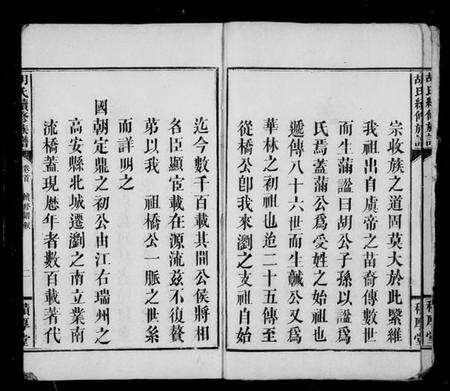 胡氏續修族譜
積厚堂
宗收族之道固莫大於此繄維
我祖出自虞帝之苗裔傳數世
而生滿諡曰胡公子孫以諡爲
氏焉蓋滿公爲受姓之始祖也
遞傳八十六世而生䎖公又爲
華林之初祖也迨二十五傳至
從橋公卽我來瀏之支祖自始
迄今數千百載其閒公侯將相
名臣顯宦載在源流茲不復贅
第以我 祖橋公一脈之世系
而詳明之
國朝定鼎之初公由江右瑞州之
高安縣北城遷瀏之南立業南
流橋蓋現歷年者數百載著代
胡氏續修族譜 卷首
一
積厚堂